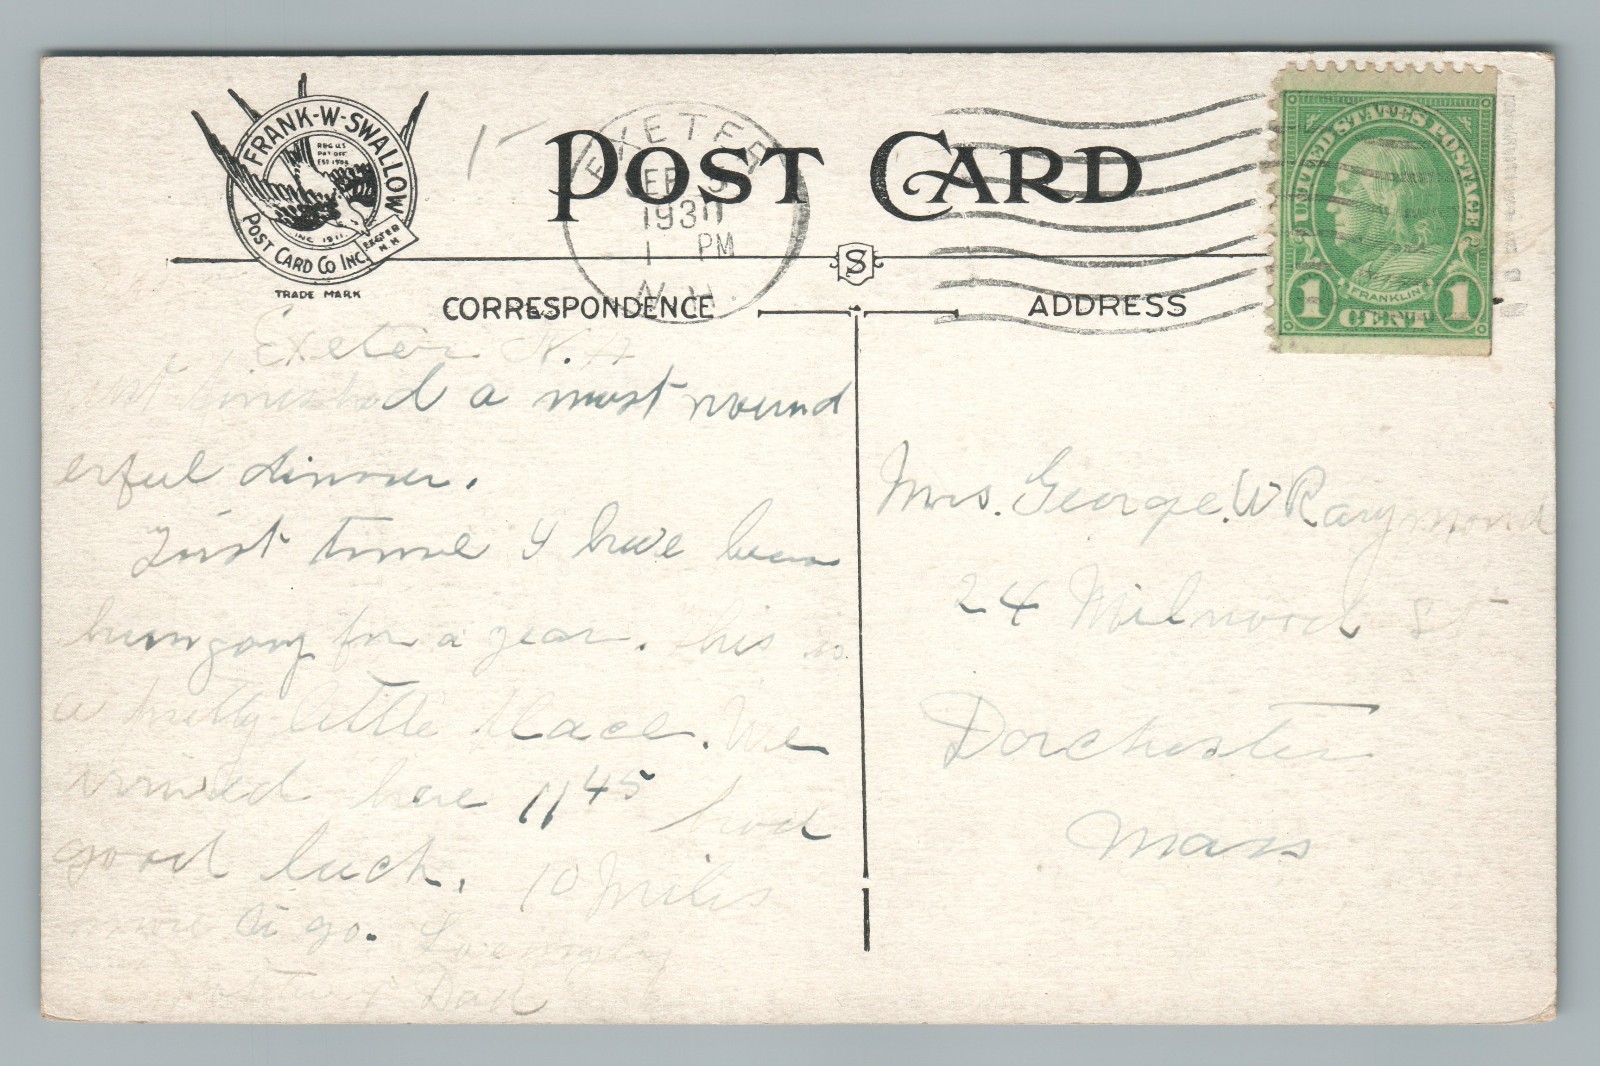 FRANK-W-SWALLOW
REG U.S.
PAT OFF.
EST 1904
INC. 1911.
POST CARD CO INC.
EXETER
N.H.
TRADE MARK
POST CARD
EXETER
SEP 5
1930
1 PM
N.H.
S
CORRESPONDENCE
ADDRESS
UNITED STATES POSTAGE
FRANKLIN
1 CENT 1
Exeter N.H
Just finished a most wound
erful dinner.
First time I have been
hungary for a year. This is
a pretty little place. We
arrived here 11 45 had
good luck. 10 Miles
more to go. Lovingly
Dad
Mrs. George. W Raymond
24 Milwood St
Dorchester
Mass